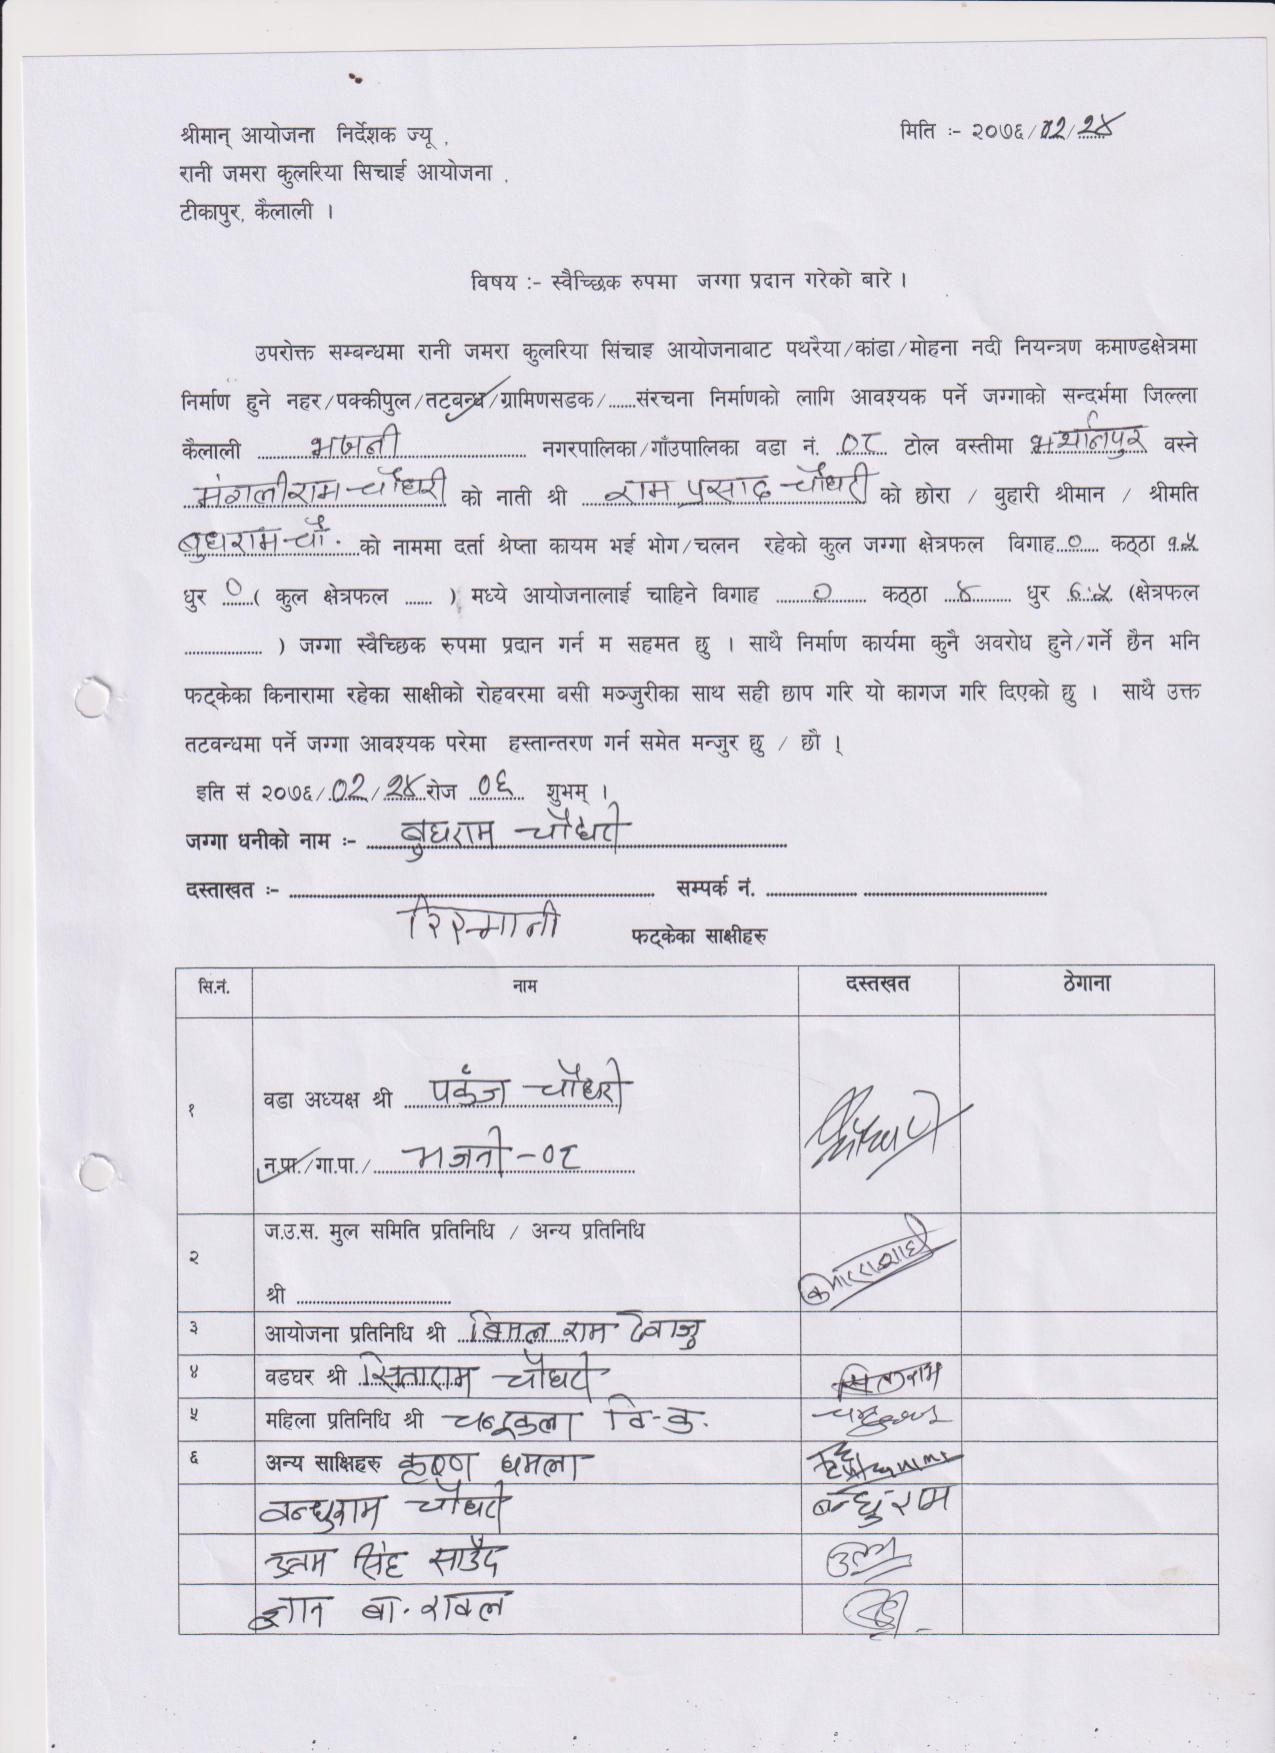 श्रीमान् आयोजना निर्देशक ज्यू , मिति :- २०७६/०२/२४
रानी जमरा कुलरिया सिचाई आयोजना ,
टीकापुर, कैलाली ।
विषय :- स्वैच्छिक रुपमा जग्गा प्रदान गरेको बारे ।
उपरोक्त सम्बन्धमा रानी जमरा कुलरिया सिंचाइ आयोजनाबाट पथरैया/कांडा/मोहना नदी नियन्त्रण कमाण्डक्षेत्रमा
निर्माण हुने नहर/पक्कीपुल/तटबन्ध/ग्रामिणसडक/.......संरचना निर्माणको लागि आवश्यक पर्ने जग्गाको सन्दर्भमा जिल्ला
कैलाली भजनी नगरपालिका/गाँउपालिका वडा नं. ०८ टोल वस्तीमा वस्ने
मंगलीराम चौधरी को नाती श्री राम प्रसाद चौधरी को छोरा / वुहारी श्रीमान / श्रीमति
बुधराम चौ. को नाममा दर्ता श्रेष्ता कायम भई भोग/चलन रहेको कुल जग्गा क्षेत्रफल विगाह ० कठ्ठा
धुर ० ( कुल क्षेत्रफल ...... ) मध्ये आयोजनालाई चाहिने विगाह ० कठ्ठा ४ धुर (क्षेत्रफल
................... ) जग्गा स्वैच्छिक रुपमा प्रदान गर्न म सहमत छु । साथै निर्माण कार्यमा कुनै अवरोध हुने/गर्ने छैन भनि
फट्केका किनारामा रहेका साक्षीको रोहवरमा वसी मञ्जुरीका साथ सही छाप गरि यो कागज गरि दिएको छु । साथै उक्त
तटवन्धमा पर्ने जग्गा आवश्यक परेमा हस्तान्तरण गर्न समेत मन्जुर छु / छौ ।
इति सं २०७६/०२/२४ रोज ०६ शुभम् ।
जग्गा धनीको नाम :- बुधराम चौधरी
दस्ताखत :- .................... सम्पर्क नं. ....................
फट्केका साक्षीहरु
सि.नं. नाम दस्तखत ठेगाना
१ वडा अध्यक्ष श्री पकंज चौधरी
न.पा./गा.पा./ भजनी -०८
२ ज.उ.स. मुल समिति प्रतिनिधि / अन्य प्रतिनिधि
श्री ....................
३ आयोजना प्रतिनिधि श्री बिमल राम देवाजु
४ वडघर श्री सिताराम चौधरी सिताराम
५ महिला प्रतिनिधि श्री चन्द्रकला वि.क.
६ अन्य साक्षिहरु कृष्ण धमला
बन्धुराम चौधरी बन्धुराम
उत्तम सिंह साउँद
ज्ञान बा. रावल